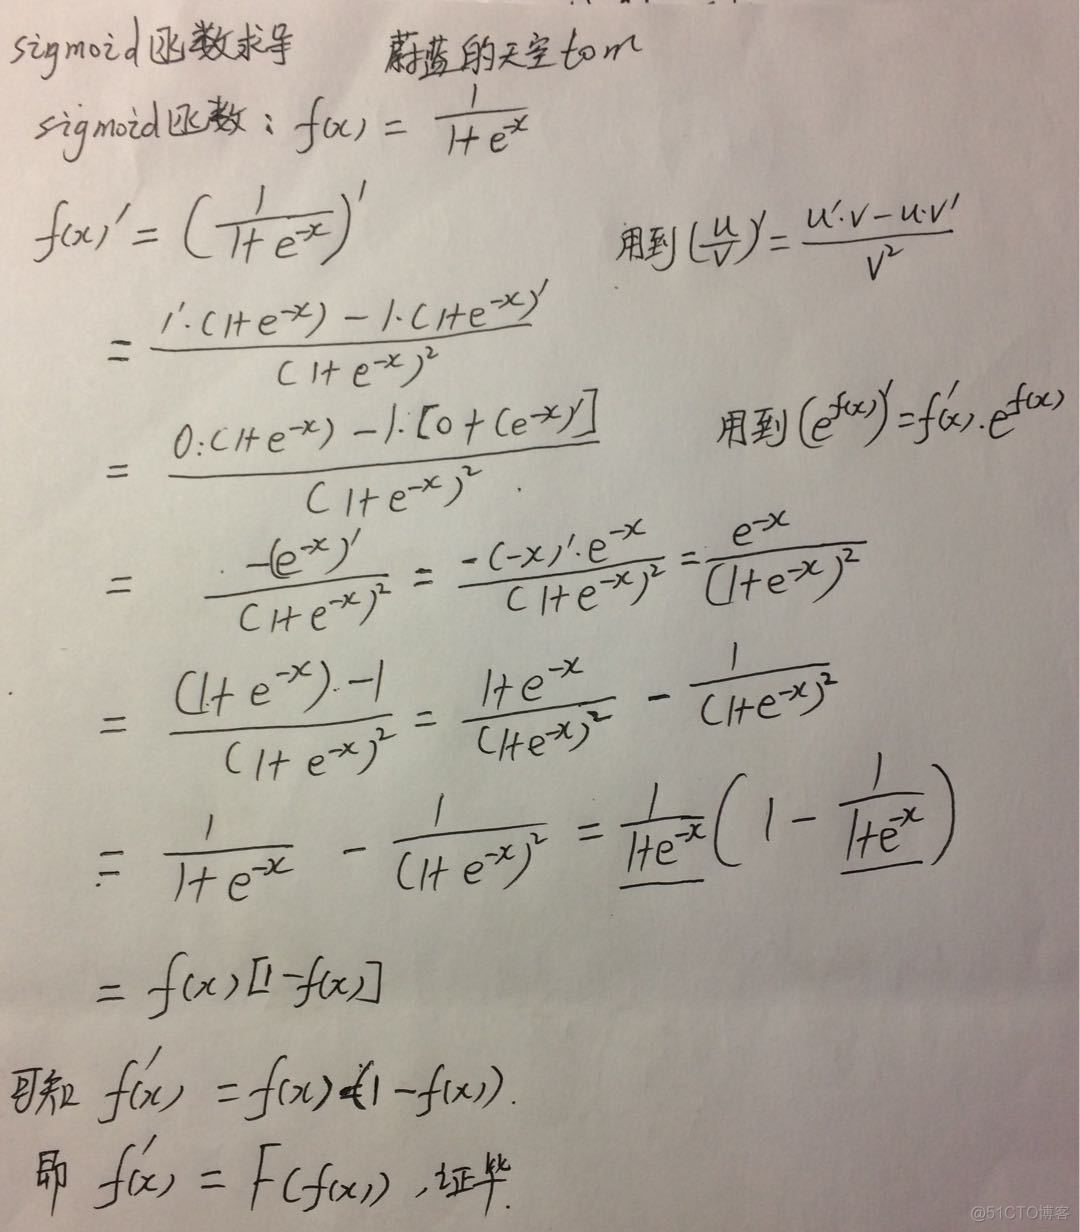 sigmoid函数求导 蔚蓝的天空tom
sigmoid函数：f(x) = 1/(1+e^{-x})
f(x)′ = (1/(1+e^{-x}))′ 用到(u/v)′ = (u′·v − u·v′)/v²
= (1′·(1+e^{-x}) − 1·(1+e^{-x})′)/(1+e^{-x})²
= (0·(1+e^{-x}) − 1·[0+(e^{-x})′])/(1+e^{-x})² 用到(e^{f(x)})′ = f′(x)·e^{f(x)}
= −(e^{-x})′/(1+e^{-x})² = −(−x)′·e^{-x}/(1+e^{-x})² = e^{-x}/(1+e^{-x})²
= ((1+e^{-x})−1)/(1+e^{-x})² = (1+e^{-x})/(1+e^{-x})² − 1/(1+e^{-x})²
= 1/(1+e^{-x}) − 1/(1+e^{-x})² = 1/(1+e^{-x}) (1 − 1/(1+e^{-x}))
= f(x)[1−f(x)]
可知 f′(x) = f(x)(1−f(x)).
即 f′(x) = F(f(x)),证毕.
@51CTO博客